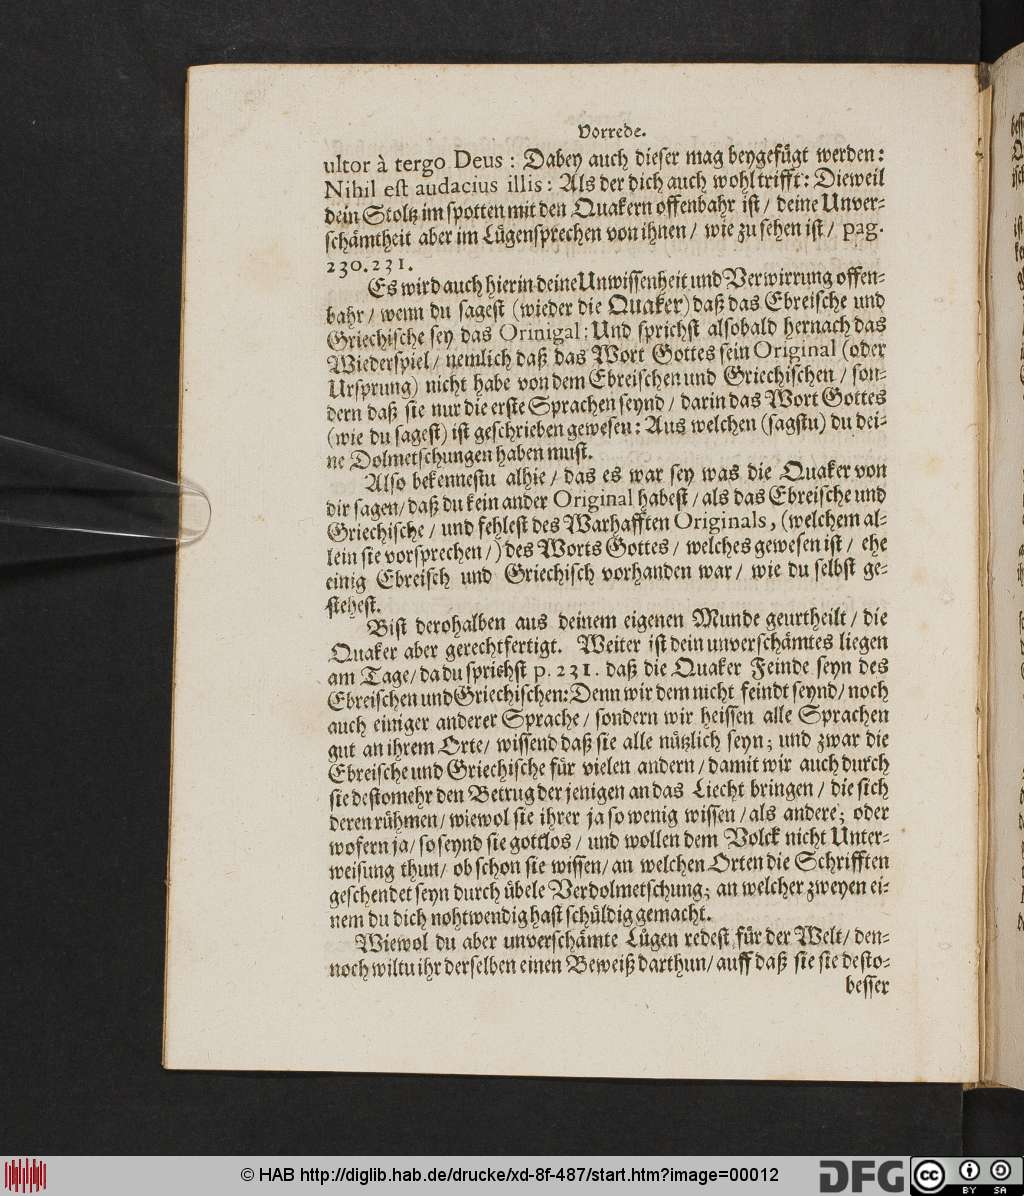 Vorrede.
ultor à tergo Deus : Dabey auch dieser mag beygefügt werden:
Nihil est audacius illis: Als der dich auch wohl trifft: Dieweil
dein Stoltz im spotten mit den Quakern offenbahr ist / deine Unver-
schämtheit aber im Lügensprechen von ihnen / wie zu sehen ist / pag.
230.231.
Es wird auch hierin deine Unwissenheit und Verwirrung offen-
bahr / wenn du sagest (wieder die Quaker) daß das Ebreische und
Griechische sey das Orinigal: Und sprichst alsobald hernach das
Wiederspiel / nemlich daß das Wort Gottes sein Original (oder
Ursprung) nicht habe von dem Ebreischen und Griechischen / son-
dern daß sie nur die erste Sprachen seynd / darin das Wort Gottes
(wie du sagest) ist geschrieben gewesen: Aus welchen (sagstu) du dei-
ne Dolmetschungen haben must.
Also bekennestu alhie / das es war sey was die Quaker von
dir sagen / daß du kein ander Original habest / als das Ebreische und
Griechische / und fehlest des Warhafften Originals, (welchem al-
lein sie vorsprechen /) des Worts Gottes / welches gewesen ist / ehe
einig Ebreisch und Griechisch vorhanden war / wie du selbst ge-
stehest.
Bist derohalben aus deinem eigenen Munde geurtheilt / die
Quaker aber gerechtfertigt. Weiter ist dein unverschämtes liegen
am Tage / da du sprichst p. 231. daß die Quaker Feinde seyn des
Ebreischen und Griechischen: Denn wir dem nicht feindt seynd / noch
auch einiger anderer Sprache / sondern wir heissen alle Sprachen
gut an ihrem Orte / wissend daß sie alle nützlich seyn; und zwar die
Ebreische und Griechische für vielen andern / damit wir auch durch
sie destomehr den Betrug der jenigen an das Liecht bringen / die sich
deren rühmen / wiewol sie ihrer ja so wenig wissen / als andere; oder
wofern ja / so seynd sie gottlos / und wollen dem Volck nicht Unter-
weisung thun / ob schon sie wissen / an welchen Orten die Schrifften
geschendet seyn durch übele Verdolmetschung; an welcher zweyen ei-
nem du dich nohtwendig hast schüldig gemacht.
Wiewol du aber unverschämte Lügen redest für der Welt / den-
noch wiltu ihr derselben einen Beweiß darthun / auff daß sie sie desto-
besser
© HAB http://diglib.hab.de/drucke/xd-8f-487/start.htm?image=00012
DFG
cc BY SA